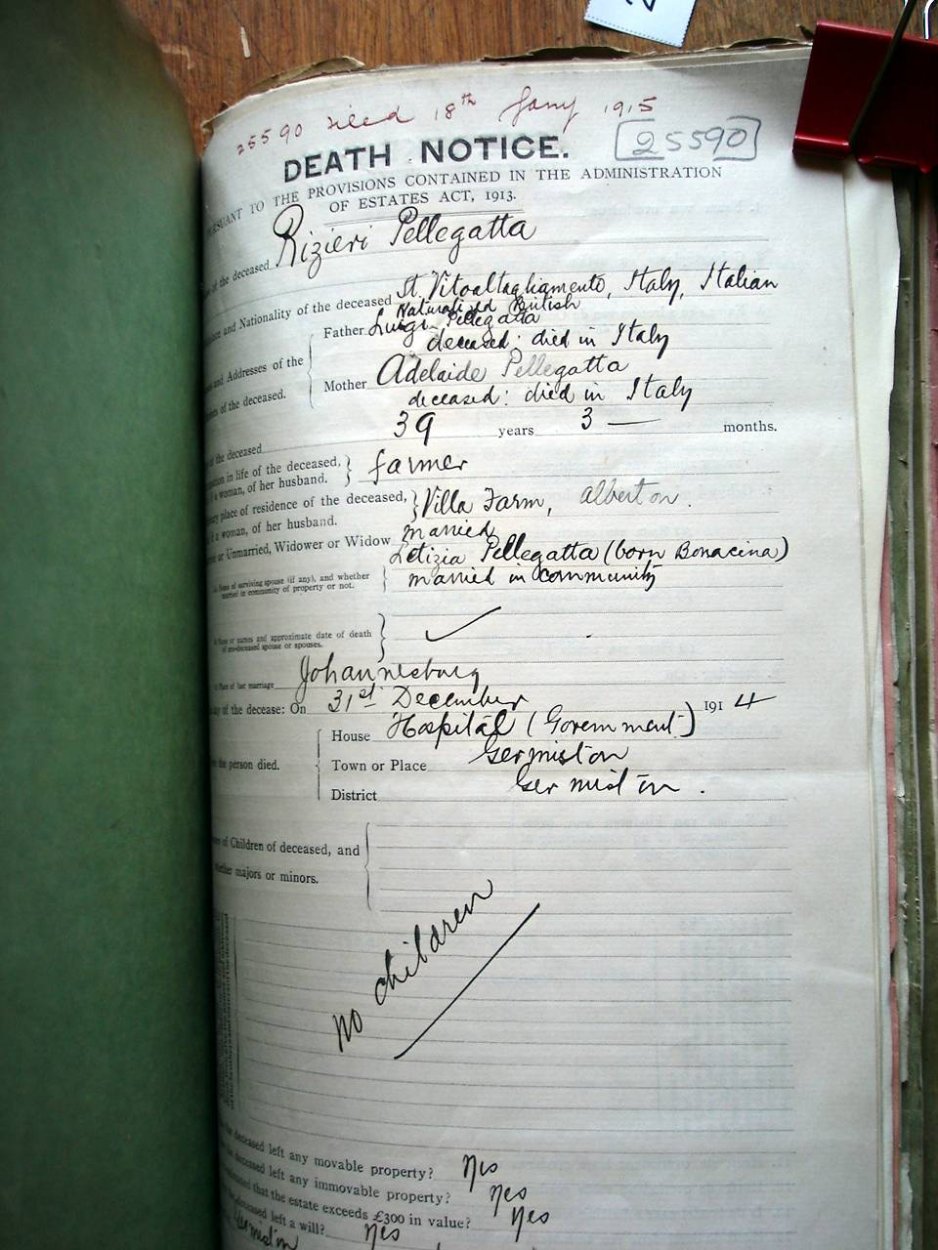 25590 filed 18th Jany 1915
25590
DEATH NOTICE.
PURSUANT TO THE PROVISIONS CONTAINED IN THE ADMINISTRATION
OF ESTATES ACT, 1913.
of the deceased Rizieri Pellegatta
and Nationality of the deceased St. Vitoaltagliamento, Italy, Italian
Naturalized British
Father Luigi Pellegatta
deceased: died in Italy
and Addresses of the
Mother Adelaide Pellegatta
of the deceased.
deceased: died in Italy
of the deceased 39 years 3 — months.
in life of the deceased, farmer
a woman, of her husband.
place of residence of the deceased, Villa Farm, Alberton
a woman, of her husband.
or Unmarried, Widower or Widow married
Letizia Pellegatta (born Bonacina)
Name of surviving spouse (if any), and whether
married in community of property or not. married in community
Name or names and approximate date of death
of pre-deceased spouse or spouses.
Place of last marriage Johannesburg
of the decease: On 31st December 1914
House Hospital (Government)
the person died. Town or Place Germiston
District Germiston.
of Children of deceased, and
whether majors or minors.
No children
the deceased left any movable property? Yes
the deceased left any immovable property? Yes
estimated that the estate exceeds £300 in value? Yes
the deceased left a will? Yes